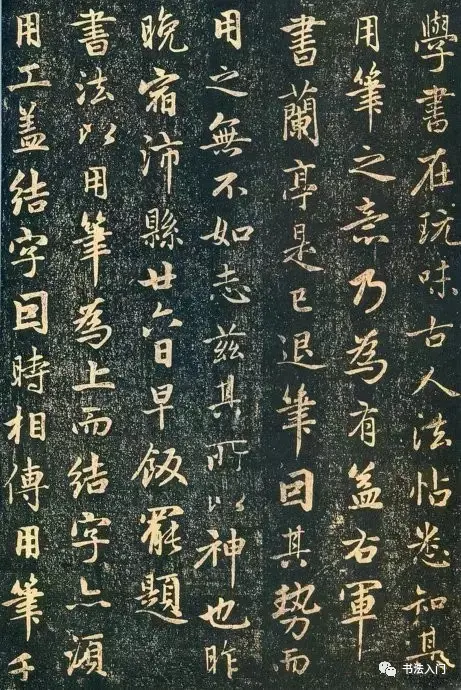 學書在玩味古人法帖悉知其
用筆之意乃為有益右軍
書蘭亭是已退筆因其勢而
用之無不如志茲其所以神也昨
晚宿沛縣廿六日早飯罷題
書法以用筆為上而結字亦須
用工盖結字因時相傳用筆千
书法入门